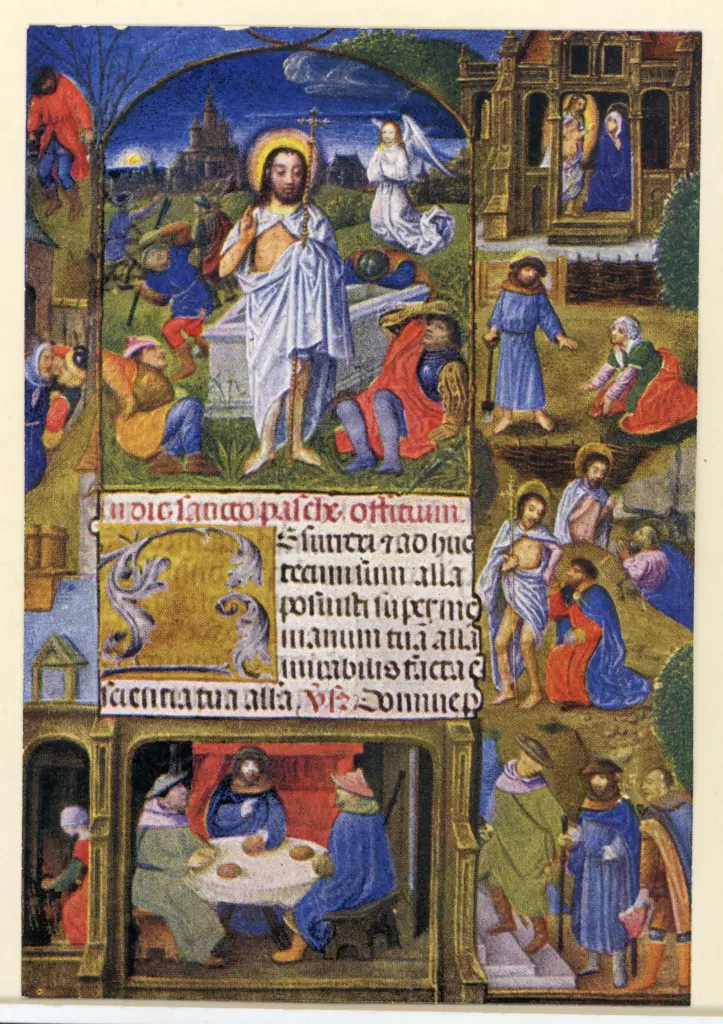 In die sancto pasche officium.
Resurrexi ⁊ ad huc
tecum sum alla
posuisti super me
manum tuā alla
mirabilis facta ē
scientia tua alla. Vs. Domine p